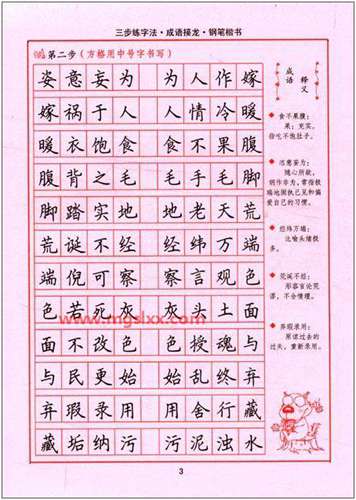 三步练字法·成语接龙·钢笔楷书
第二步(方格用中号字书写)
姿意妄为 为人作嫁
嫁祸于人 人情冷暖
暖衣饱食 食不果腹
腹背之毛 毛手毛脚
脚踏实地 地老天荒
荒诞不经 经纬万端
端倪可察 察言观色
色若死灰 灰头土面
面不改色 色授魂与
与民更始 始乱终弃
弃瑕录用 用舍行藏
藏垢纳污 污泥浊水
成语释义
食不果腹:
果:充实。
指吃不饱肚子。
恣意妄为:
随心所欲,
胡作非为,常指极
端地固执己见和偏
爱自己的习惯。
经纬万端:
比喻头绪很
多。
荒诞不经:
形容言论荒
谬,不合情理。
弃瑕录用:
原谅过去的
过失,重新录用。
www.mgslxx.com
3